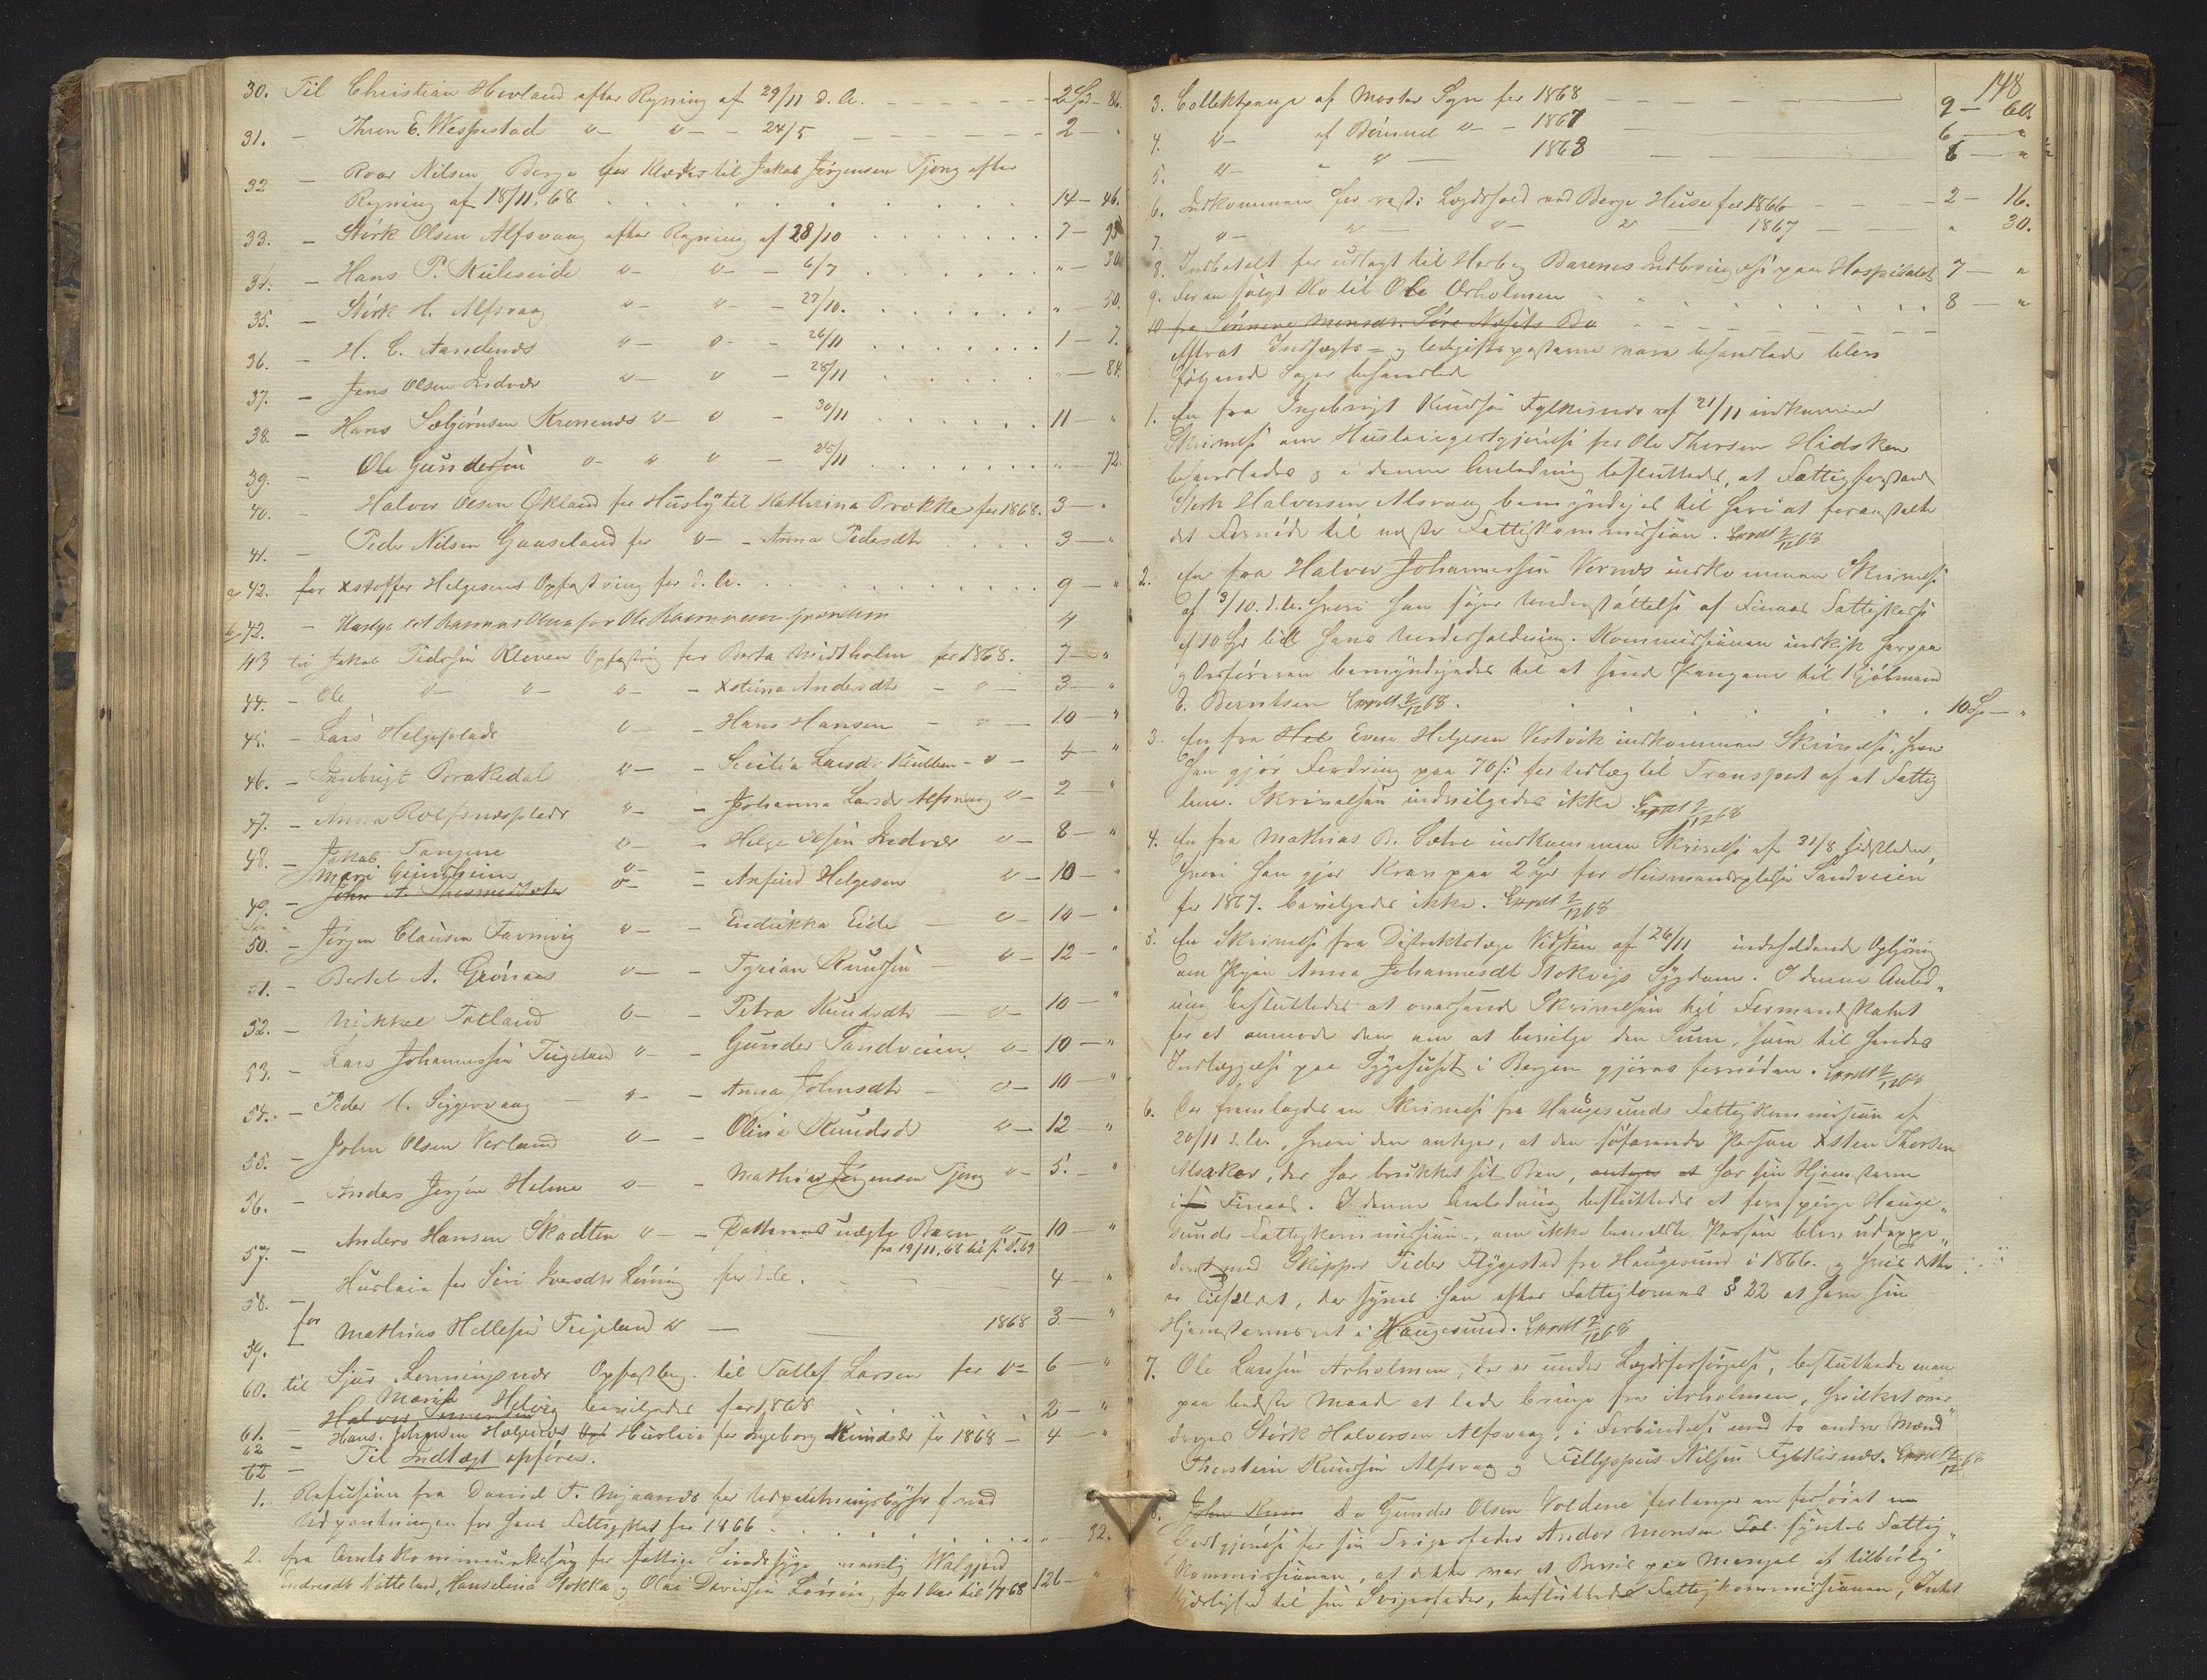 30. Til Christian Hovland efter Regning af 29/11 d. A. 2 Spd - 86.
31. - Thron E. Wespestad " " - 24/5 2 - "
32 - Roar Nilsen Berge for Klæder til Jakob Jørgensen Tjong efter
Regning af 18/11. 68 14 - 46.
33. - Størk Olsen Alfsvaag efter Regning af 28/10 7 - 95
34. - Hans P. Kuleseide " " - 6/7 " - 30
35. - Størk H. Alfsvaag " " - 27/10. " - 50.
36. - H. C. Aandenæs " " - 26/11 1 - 7.
37. - Jens Olsen Indvær " " - 28/11 " - 84.
38. - Hans Sæbjørnsen Kronenæs " " - 30/11 11 - "
39. - Ole Gundersen " " " - 28/11 " - 72.
40. - Halvor Olsen Økland for Husly til Kathrina Brække for 1868. 3 - "
41. - Peder Nilsen Gaaseland for " - Anna Pedersdtr 3 - "
a 42. for Xstoffer Helgesens Opfostring for d. A. 9 - "
b 42. - Husleje til Rasmus Olsen for Ole Rasmussen 4
43 til Jakob Pedersen Kleven Opfostring for Berta Midtholm for 1868. 7 - "
44. - Ole " " " - Xstina Andersdtr - " - 3 - "
45. - Lars Helgeplads " - Hans Hansen - " - 10 - "
46. - Ingebrigt Brakedal " - Sicilia Larsdr - " - 4 - "
47. - Anna Rolfsnæsplads " - Johanna Larsdr Alfsvaag " - 2 - "
48. - Jakob Tangene " - Helge Olsen Indvær " - 8 - "
Mari Grindheim
49. - John A. " - Anfind Helgesen " - 10 - "
50. - Jørgen Clausen Tavnvig " - Endrikka Eide - " - 10 - "
51. - Bertel A. Grønaas " - Fyrian Knudsen - " - 12 - "
52. - Mikkel Totland " - Petra Knudsdtr - " - 10 - "
53. - Lars Johannessen Teigeland " - Gunder Sandveien " - 10 - "
54. - Peder H. Siggervaag " - Anna Johnsdtr - " - 10 - "
55. - John Olsen Verland " - Olina Knudsdr " - 12 - "
56. - Anders Jørgen Holme " - Mathias Jørgensen Tjong " - 5. - "
57. - Anders Hansen Skadten " - Datterens uægte Barn " - 10 - "
fra 19/11. 68 til s. D. 69
58. - Husleie for Siri Iversdtr Lønning for d. A. 4 - "
59. for Mathias Hellesen Teigeland " 1868 3 - "
60. til Sjur Lønningsnæs Opfostring til Tollef Larsen for " 6 - "
61. - Marith Helvig bevilgedes for 1868 2 - "
62 - Hans Johnsen Helgesnæs Husleie for Ingeborg Knudsdr for 1868 - 4 - "
62 - Til Indtægt opføres.
1. Refusion fra Daniel T. Nyaands for Udpantningsgebyhr ved
Udpantningen for hans Fattigskat for 1866 " - 32.
2. fra Amtskommunekassen for fattige Sindssyge nemlig Walgjerd
Endresdtr Nøtteland, Hanselina Stokka og Olai Davidsen Lønning for 1 Aar til 1/7 68 126 - "
148
3. Collektpenge af Moster Sogn for 1868 9 - 60
4. " af Bømmel " - 1867 6 - "
5. " " " 1868 6 - "
6. Indkommen for rest: Lægdshold ved Berge Huse for 1866 2 - 16.
7. " " " " 1867 " 30.
8. Indbetalt for udlagt til Herborg Barenes Indbringelse paa Hospitalet 7 - "
9. For en solgt Ko til Ole Arholmen 8 - "
10 fra Sønneve Monsdr. Søre Næsits Bo
Efterat Indtægts- og Udgiftsposterne vare behandlede blev
følgende Sager behandlede
1. En fra Ingebrigt Knudsen Fylkesnæs af 21/11 indkommen
Skrivelse om Husleiegodtgjørelse for Ole Thorsen Hidsken
behandledes og i denne Anledning besluttedes, at Fattigforstander
Størk Halvorsen Alsvaag bemyndiges til heri at foranstalte
det Fornødne til næste Fattigkommission. Exndt 2/12 68
2. En fra Halvor Johannessen Vernæs indkommen Skrivelse
af 3/10. d. A. hvori han søger Understøttelse af Finaas Fattigkasse
af 10 Spd til hans Underholdning. Kommissionen indgik herpaa
og Ordføreren bemyndigedes til at sende Pengene til Kjøbmand
E. Berntsen Exndt 2/12 68. 10 Spd - "
3. En fra Hel Even Helgesen Vestvik indkommen Skrivelse, hvori
han gjør Fordring paa 70 s: for Udlæg til Transport af et Fattig
lem. Skrivelsen indvilgedes ikke. Exndt 2/12 68
4. En fra Mathias B. Sætre indkommen Skrivelse af 31/8 sidstleden,
hvori han gjør Krav paa 2 Spd for Husmandspladsen Sandveien
for 1867. bevilgedes ikke. Exndt 2/12 68
5. En Skrivelse fra Distriktslæge Vidsten af 26/11 indeholdende Oplysning
om Pigen Anna Johannesdtr Stokvigs Sygdom. I denne Anled-
ning besluttedes at oversende Skrivelsen til Formandskabet
for at anmode dem om at bevilge den Sum, som til hendes
Indlæggelse paa Sygehuset i Bergen gjøres fornøden. Exndt 2/12 68
6. Der fremlagdes en Skrivelse fra Haugesunds Fattigkommission af
20/11 d. A., hvori den antager, at den søfarende Person Xsten Thorsen
Alsaker, der har brukket sit Ben, antager at har sin Hjemstavn
i Finaas. I denne Anledning besluttedes at forespørge Hauge-
sunds Fattigkommission, om ikke bemeldte Person blev udexpe-
deret med Skipper Peder Flygestad fra Haugesund i 1866. og hvis dette
er Tilfældet, da synes han efter Fattiglovens § 22 at have sin
Hjemstavnsret i Haugesund. Exndt 2/12 68
7. Ole Larssen Arholmen, der er under Lægdsforsørgelse, besluttede man
paa bedste Maade at lade bringe fra Arholmen, hvilket over-
drages Størk Halvorsen Alfsvaag, i Forbindelse med to andre Mænd
Thorstein Knudsen Alfsvaag og Fillippus Nilsen Fylkesnæs. Exndt 2/12 68
8. John Knu Da Gunder Olsen Voldene forlanger en forhøiet
Godtgjørelse for sin Svigerfader Andor Monsen Tol. syntes Fattig-
kommissionen, at dette var et Beviis paa Mangel af tilbørlig
Kjærlighed til sin Svigerfader, besluttede Fattigkommissionen, Intet